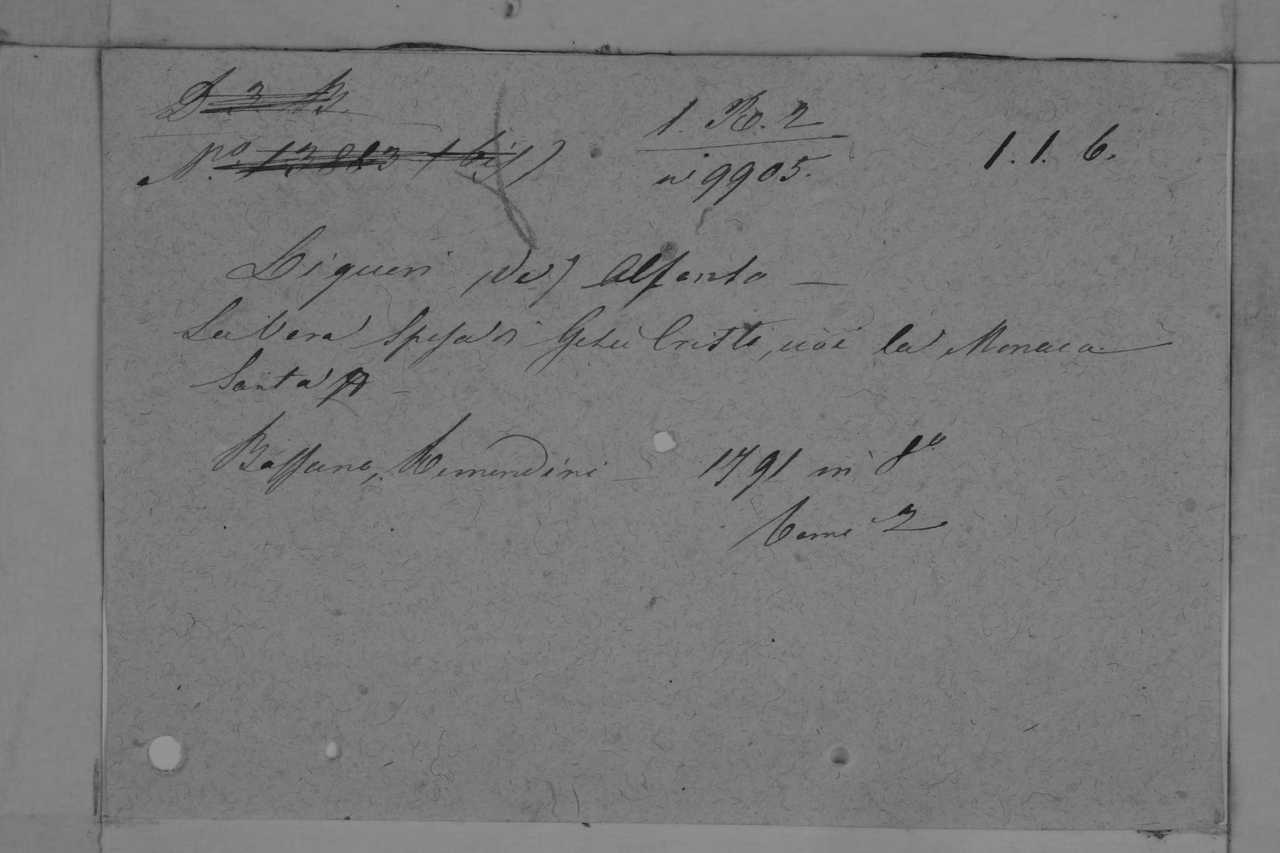 D 3 B.
N.º 13813 (bis)
1. R. 2
nº 9905.
1. 1. 6.
Ligueri (de) Alfonso —
La Vera Sposa di Gesù Cristo, cioè la Monaca
Santa
Bassano, Remondini — 1791 in 8º
Tomi 2